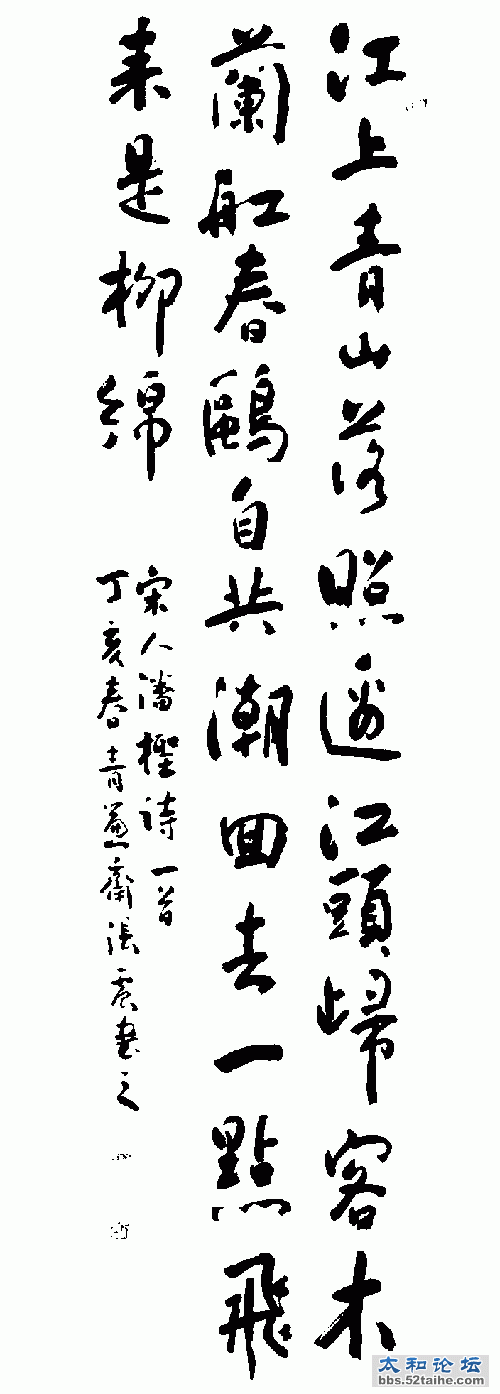 江上青山落照邊江頭歸客木
蘭舡春鷗自共潮回去一點飛
来是柳綿
宋人潘檉詩一首
丁亥春青齋張震書之
太和论坛
bbs.52taihe.com